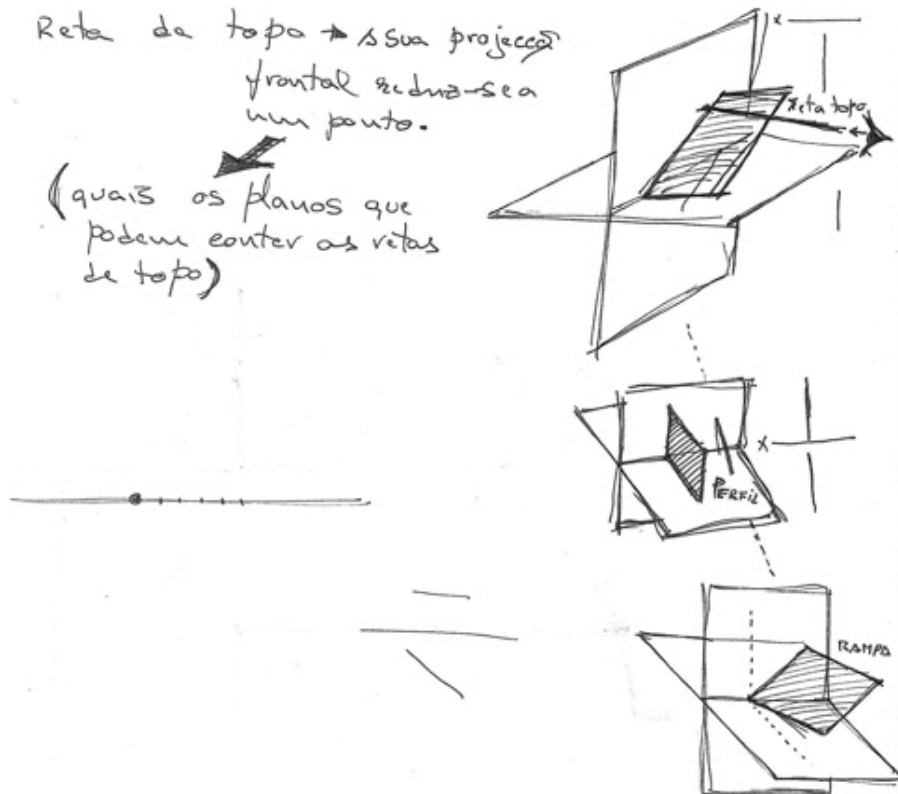 Reta de topo → A sua projecção
frontal reduz-se a
um ponto.
(quais os planos que
podem conter as retas
de topo)
x
reta topo
x
x
PERFIL
RAMPA